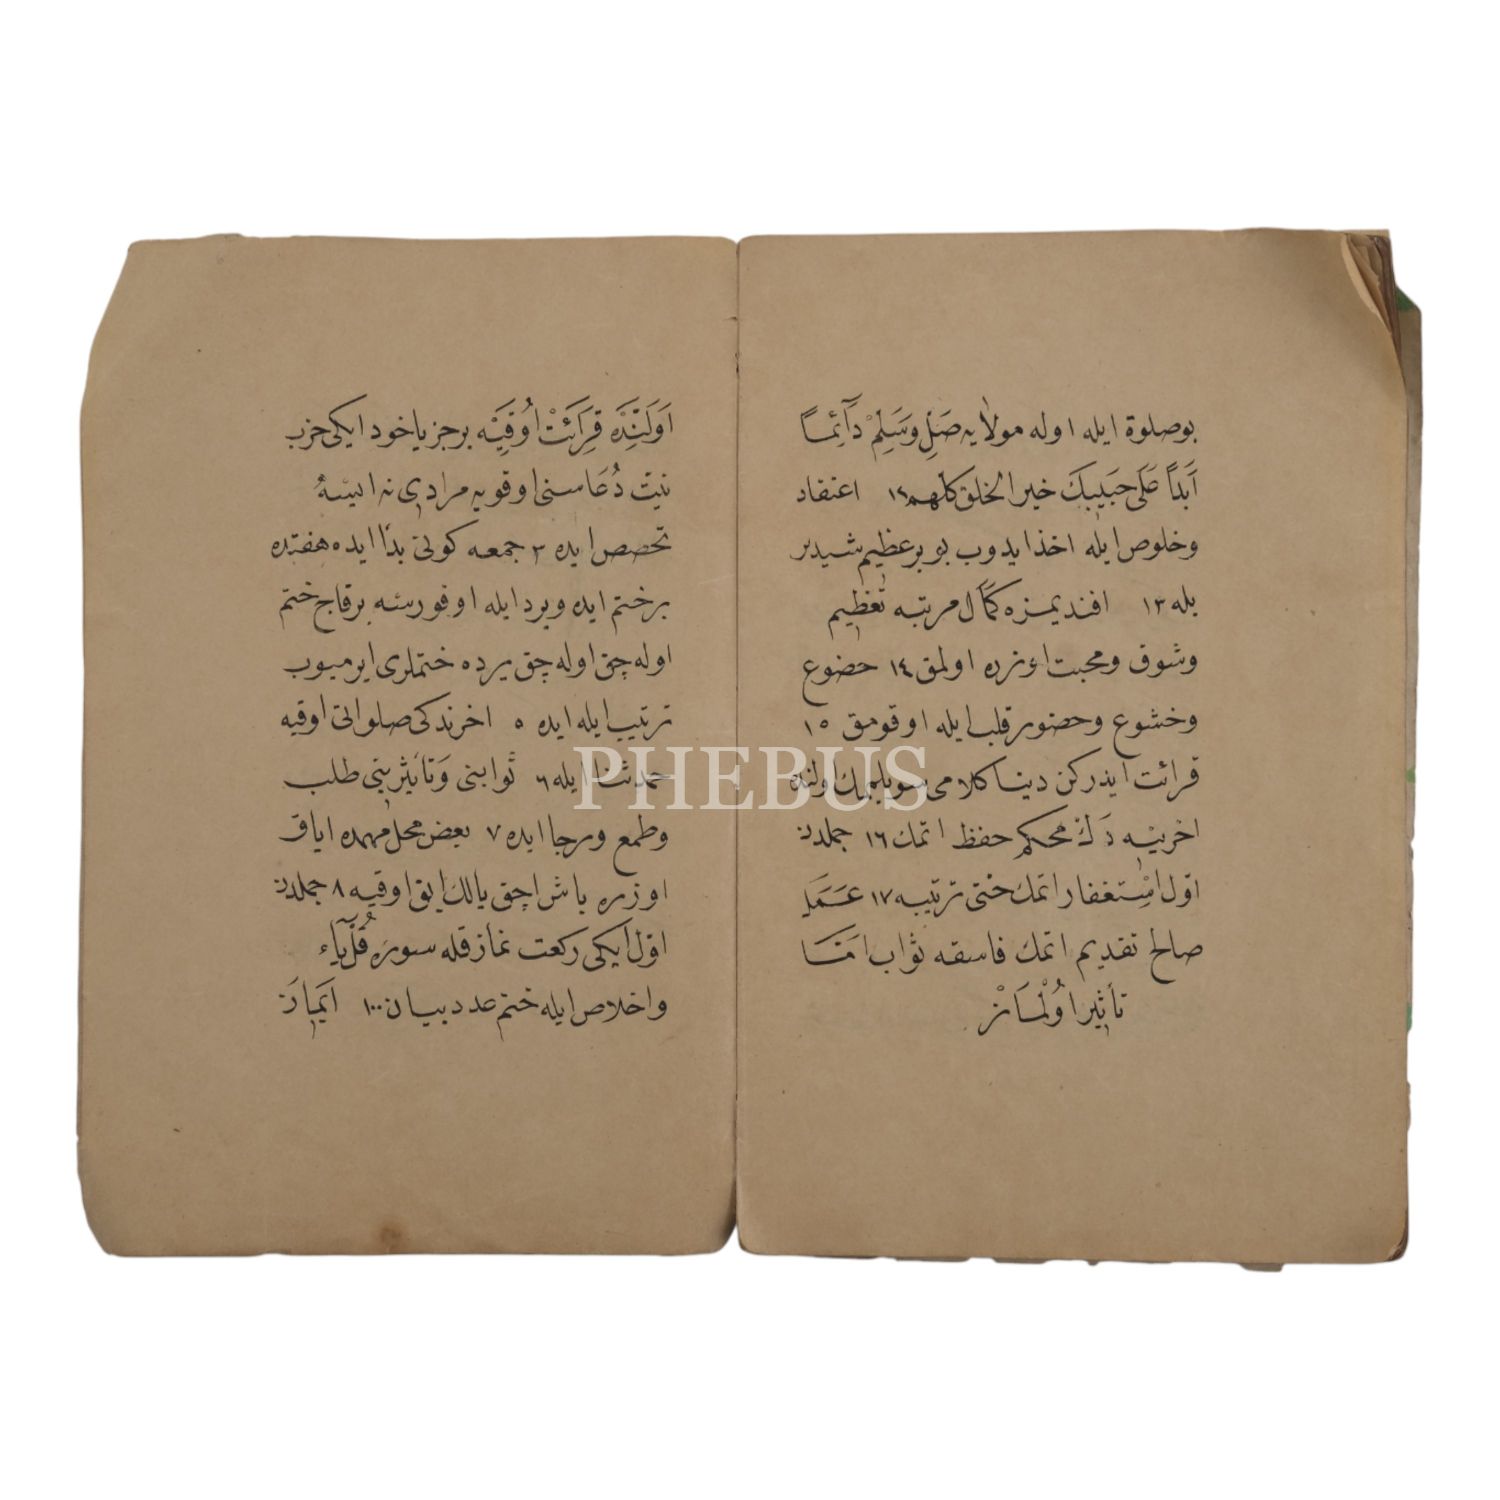 بوصلوة ايله اوله مولايه صَلِّ وَسَلِّمْ دَآئِمًا
اَبَدًا عَلَى حَبِيبِكَ خير الخلق كلهم ١٢ اعتقاد
وخلوص ايله اخذ ايدوب بو بر عظيم شيدر
بله ١٣ افنديمزه كمال مرتبه تعظيم
وشوق ومحبت اوزره اولمق ١٤ حضوع
وخشوع وحضور قلب ايله اوقومق ١٥
قرائت ايدركن دينا كلامى سويليمك اولنده
اخرينه دك محكم حفظ اتمك ١٦ جملدن
اول استغفار اتمك ختى ترتيبه ١٧ عَمَلِ
صالح تقديم اتمك فاسقه ثواب اَمَّا
تأثير اولماز
اَوَلِنْدَه قِرَائَتْ اُوقيه بر جز ياخود ايكى حزب
نيت دُعَاسنى اوقويه مرادى نه ايسه
تخصص ايده ٣ جمعه كونى بدأ ايده هفتده
بر ختم ايده ويرد ايله اوقورسه بر قاج ختم
اوله جق اوله جق يرده ختملرى ايرميوب
ترتيب ايله ايده ٥ اخرندكى صلواتى اوقيه
حمد ثنا ايله ٦ ثوابنى وَتأثيرينى طلب
وطمع ورجا ايده ٧ بعض محل مهمده اياق
اوزره باش اچق يالك ايق اوقيه ٨ جملدن
اوّل ايكى ركعت نماز قله سوره قُلْ يَاء
واخلاص ايله ختم عدد بيان ١٠٠
PHEBUS